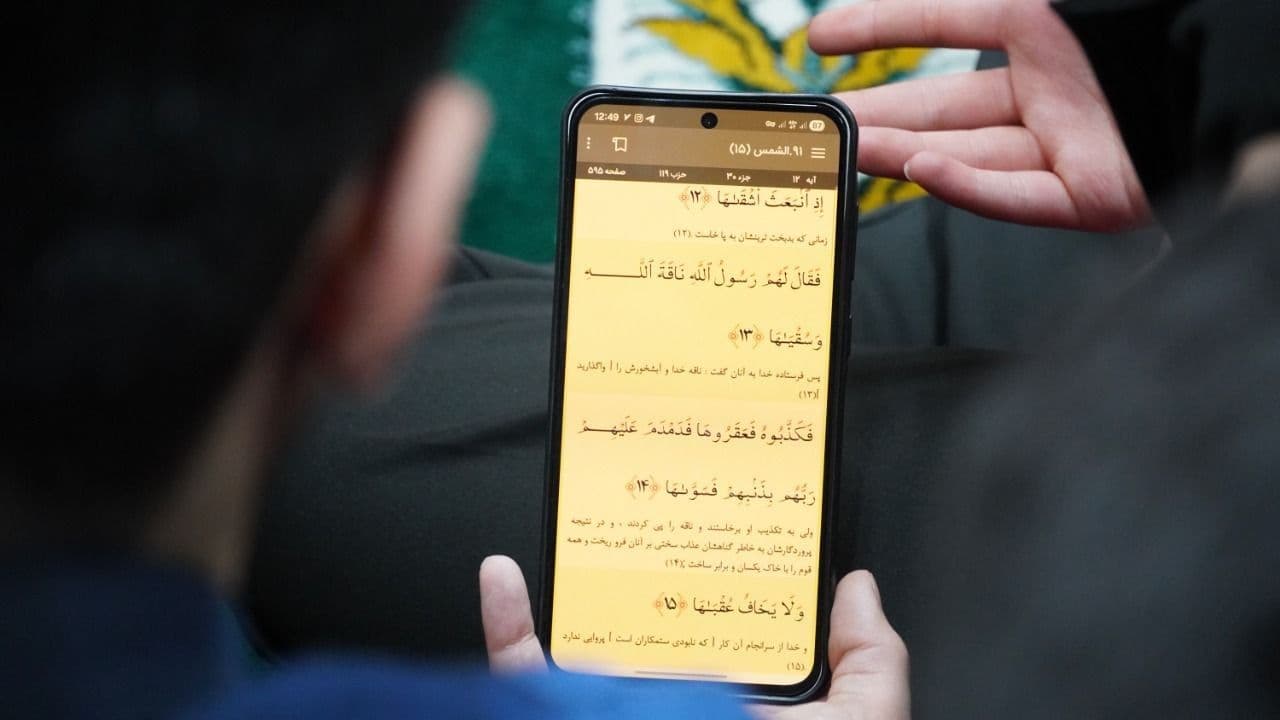 12:49 87
۹۱.الشمس (۱۵)
آیه ۱۲ جزء ۳۰ حزب ۱۱۹ صفحه ۵۹۵
إِذِ ٱنۢبَعَثَ أَشۡقَىٰهَا ﴿۱۲﴾
زمانی که بدبخت ترینشان به پا خاست .(۱۲)
فَقَالَ لَهُمۡ رَسُولُ ٱللَّهِ نَاقَةَ ٱللَّهِ
وَسُقۡيَٰهَا ﴿۱۳﴾
پس فرستاده خدا به آنان گفت : ناقه خدا و آبشخورش را [ واگذارید
](۱۳)
فَكَذَّبُوهُ فَعَقَرُوهَا فَدَمۡدَمَ عَلَيۡهِمۡ
رَبُّهُم بِذَنۢبِهِمۡ فَسَوَّىٰهَا ﴿۱۴﴾
ولی به تکذیب او برخاستند و ناقه را پی کردند ، و در نتیجه
پروردگارشان به خاطر گناهشان عذاب سختی بر آنان فرو ریخت و همه
قوم را با خاک یکسان و برابر ساخت ;(۱۴)
وَلَا يَخَافُ عُقۡبَٰهَا ﴿۱۵﴾
و خدا از سرانجام آن کار [ که نابودی ستمکاران است ] پروایی ندارد
(۱۵)